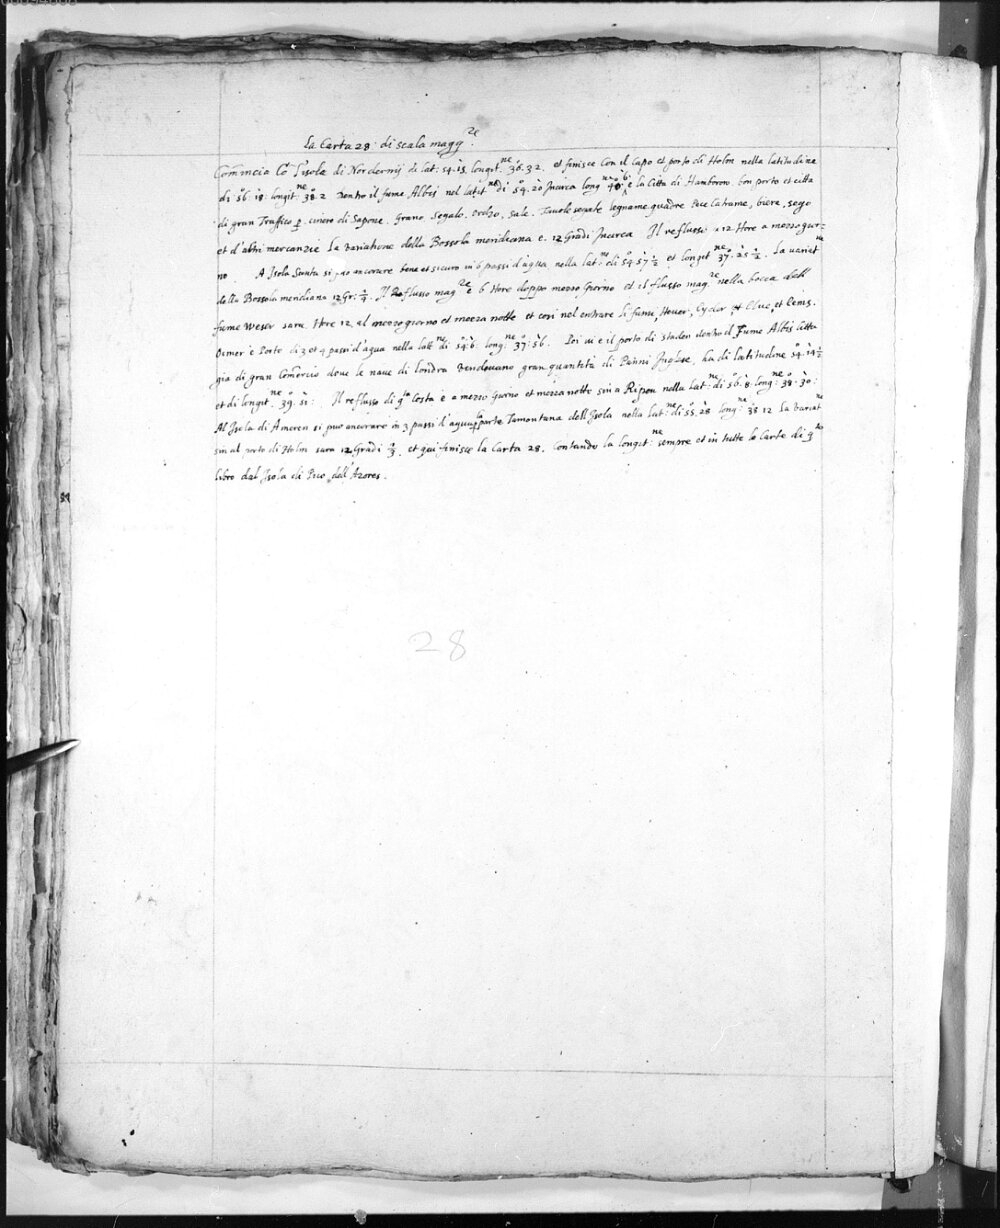 La Carta 28: di scala magg.re
Comincia Cō l'isola di Nordernij di lat: 54.15 longit.ne 36.32. et finisce Con il Capo et porto di Holm nella latitudine
di 56.18: longit.ne 38.2 Dentro il fiume Albis nel latit.ne di 54.20 Incirca long.ne 40.6 è la Citta di Hamboron bon porto et citta
di gran Traffico p. cuiero di Sapone, Grano Segalo, Ordzo, Sale, Tauole segate legname quadre Pece Catrame, biere, sego
et d'altri mercanzie La Variatione della Bossola meridiana e. 12 Gradi Incirca Il reflusso 12 Hore a mezzogior=
no A Isola Santa si può ancorare bene et sicuro in 6 passi d'aqua nella lat:ne di 54.57½ et longit.ne 37.25½. La variet.ne
della Bossola meridiana 12 Gr: ¼. Il Reflusso mag.re e 6 Hore doppo mezzo Giorno et il flusso mag.re nella bocca dell
fiume Weser sara Hore 12, al mezzogiorno et mezza notte et cosi nel entrare li fiumi, Heuer, Eyder, et Elue, et Eems.
Osmer è Porto di 3 et 4 passi d'aqua nella latt.ne di 54:6: long:ne 37:56. Poi ui è il porto di Staden dentro il Fiume Albis Citta
gia di gran Comercio doue le naue di Londra Vendeuano gran quantita di Panni Inglese, ha di latitudine 54.14½
et di longit.ne 39.51: Il reflusso di q.ta Costa è a mezzo Giorno et mezza notte sin a Ripen nella lat:ne di 56.8: long:ne 38.30:
Al Isola di Ameren si puo ancorare in 3 passi d'aqua p la parte Tramontana dell Isola nella lat:ne di 55.28 long:ne 38 12 La Variat.ne
sin al porto di Holm sara 12 Gradi ⅔. et qui finisce la Carta 28. Contando la longit:ne sempre et in tutte le Carte di q.to
libro dal Isola di Pico dell'Azores.
28